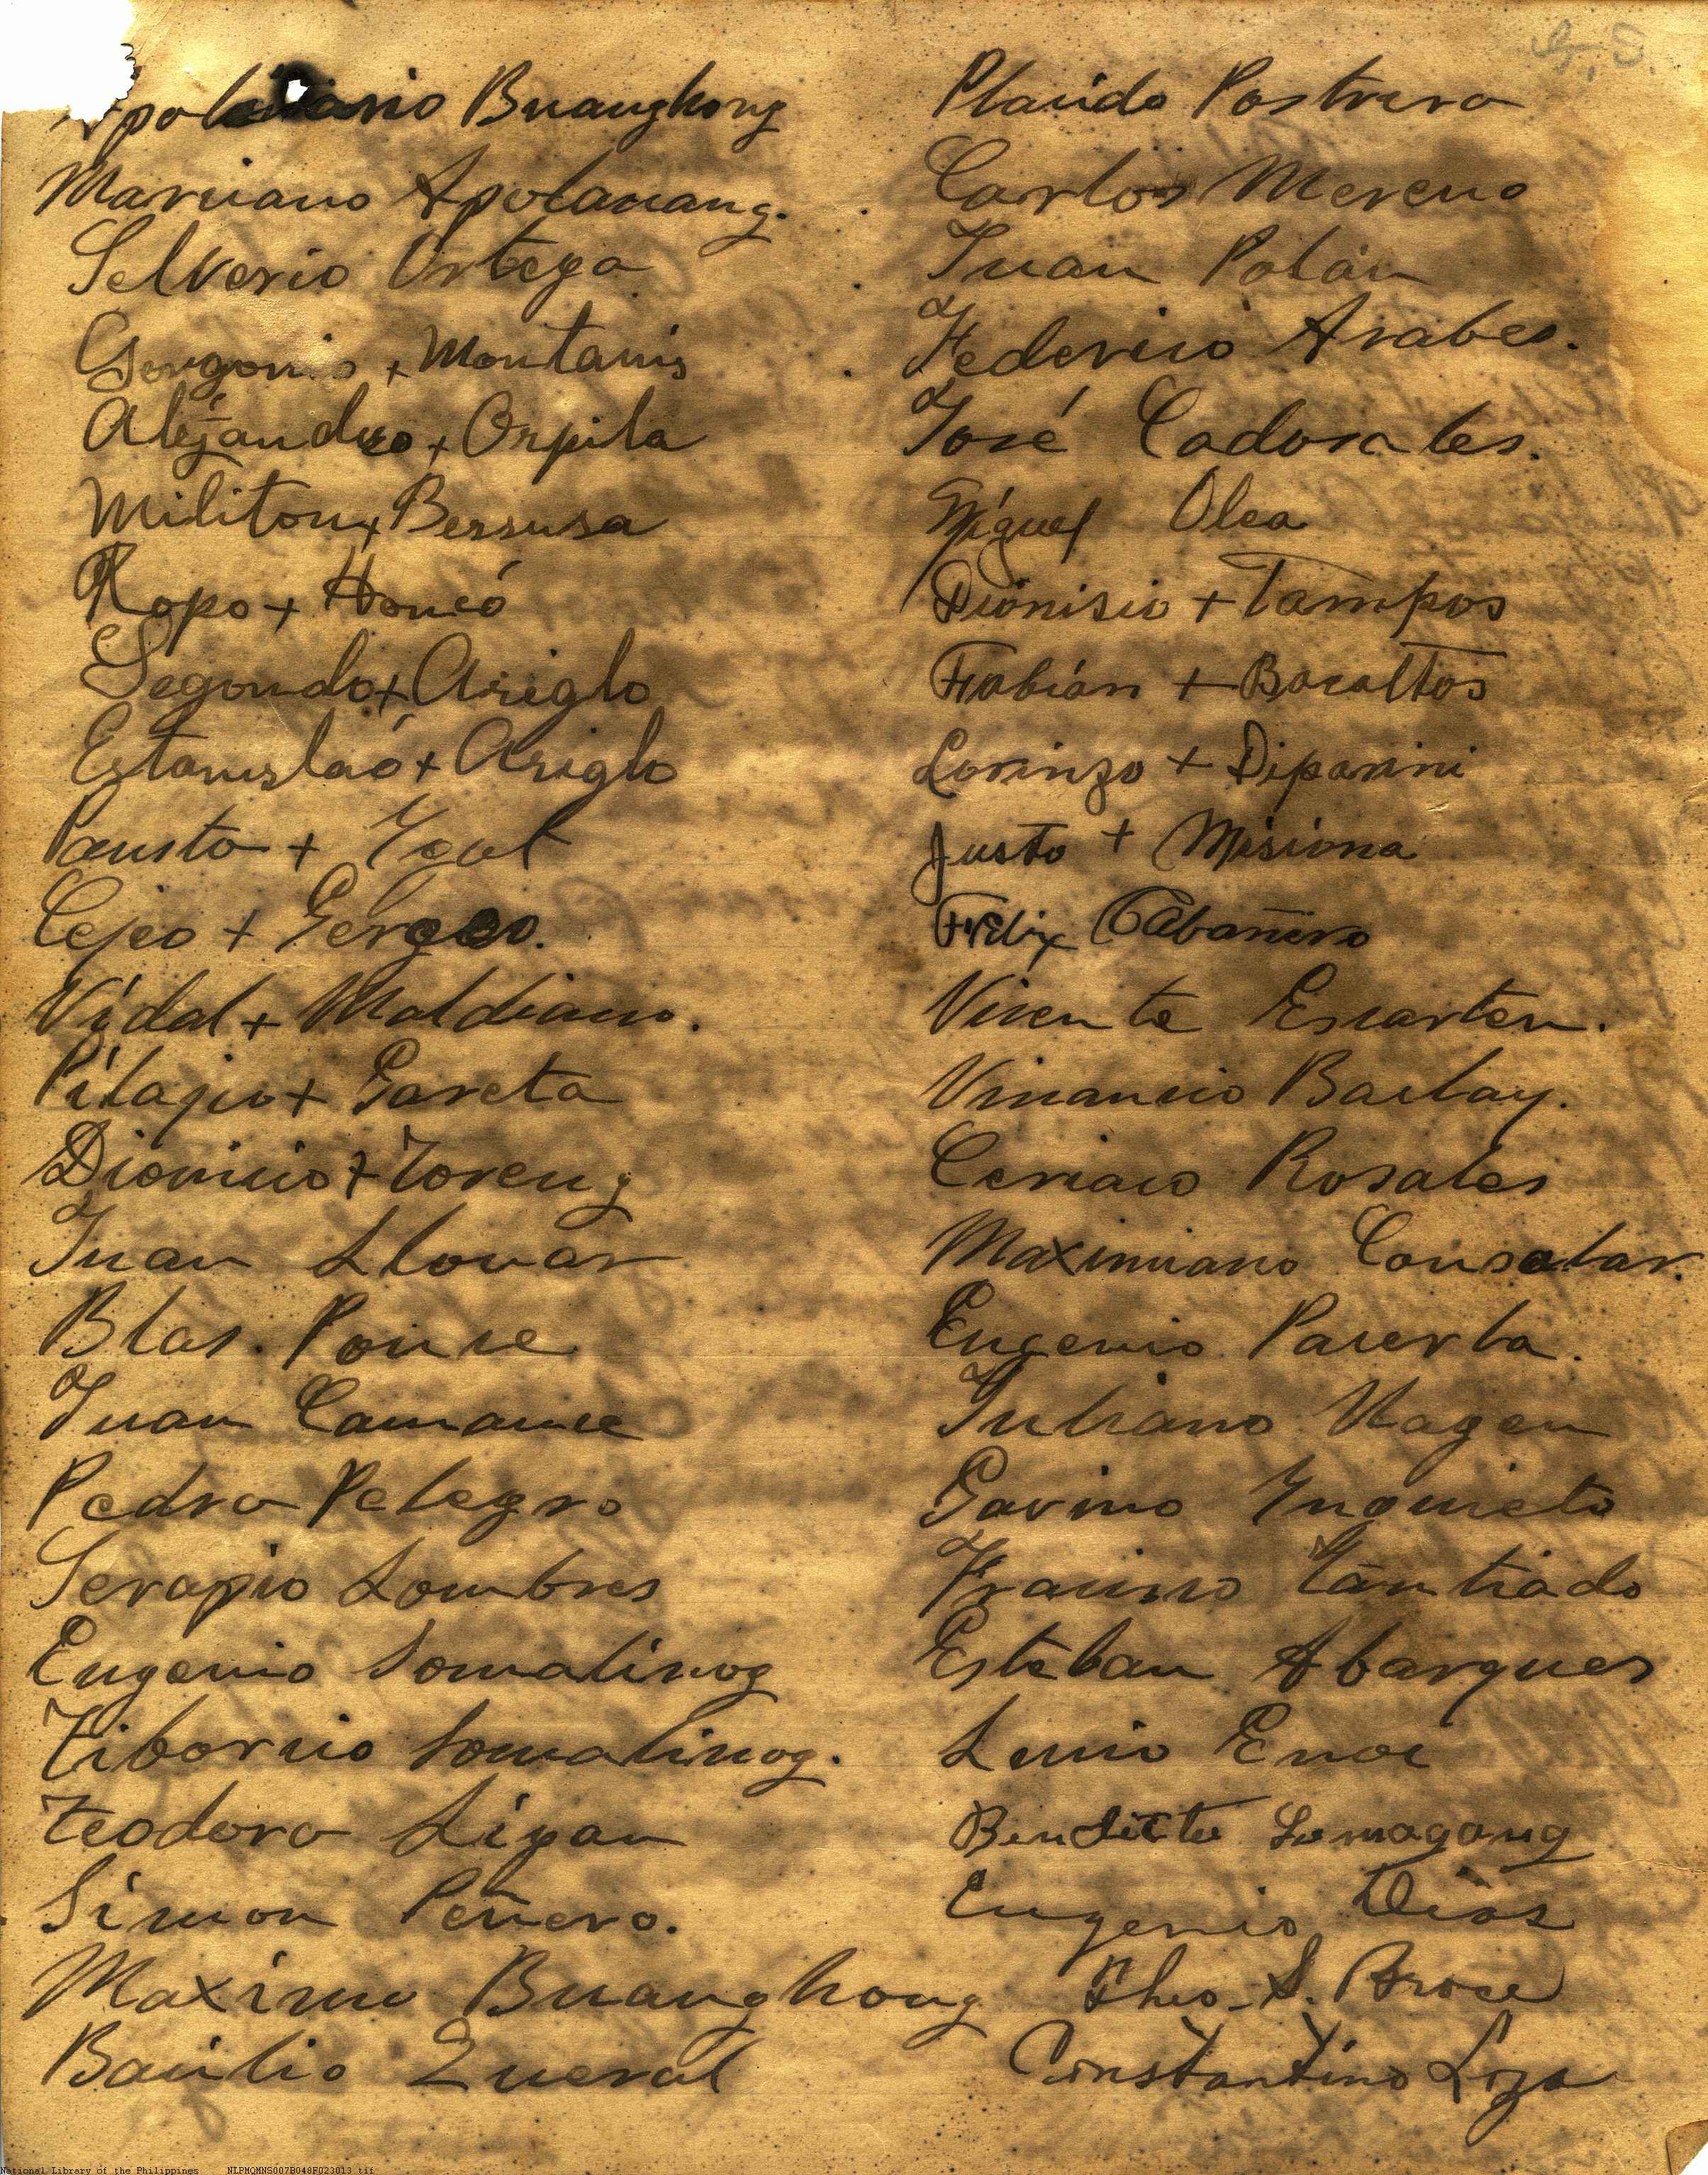 Apolinario Buanghong
Marciano Apolacang.
Selverio Ortega
Gorgonio + Montanis
Aléjandro + Orpila
Militon + Bersusa
Ropo + Honcó
Segondo + Ariglo
Estanislaó + Ariglo
Pausto + Ygot
Cejeo + Gergeo.
Vidal + Maldiano.
Pilagio + Gareta
Dionicio + Toreng
Juan Llovar
Blas. Ponce
Juan Camance
Pedro Pelegro
Serapio Lombres
Eugenio Somalinog
Tiborcio Somalinog.
Teodoro Ligan
Simon Peñero.
Maximo Buanghong
Bacilio Queval
G. S.
Placido Postrero
Carlos Mereno
Juan Polán
Federico Arabes.
José Cadosales.
Miguel Olea
Dionisio + Tampos
Fabián + Bacaltos
Lorinzo + Diparini
Justo + Misiona
Felix Cabañero
Vicente Escarten.
Vinancio Baclay.
Ceriaco Rosales
Maximiano Consolar.
Eugenio Pacerla.
Juliano Nagen
Gavino Ynquieto
Fracino Cantiado
Esteban Abarques
Lucio Enoc
Bendicto Lumagang
Eugenio Dios
Theo. S. Broce
Constantino Loza
National Library of the Philippines NLPMQMNS007B048F023013.tif